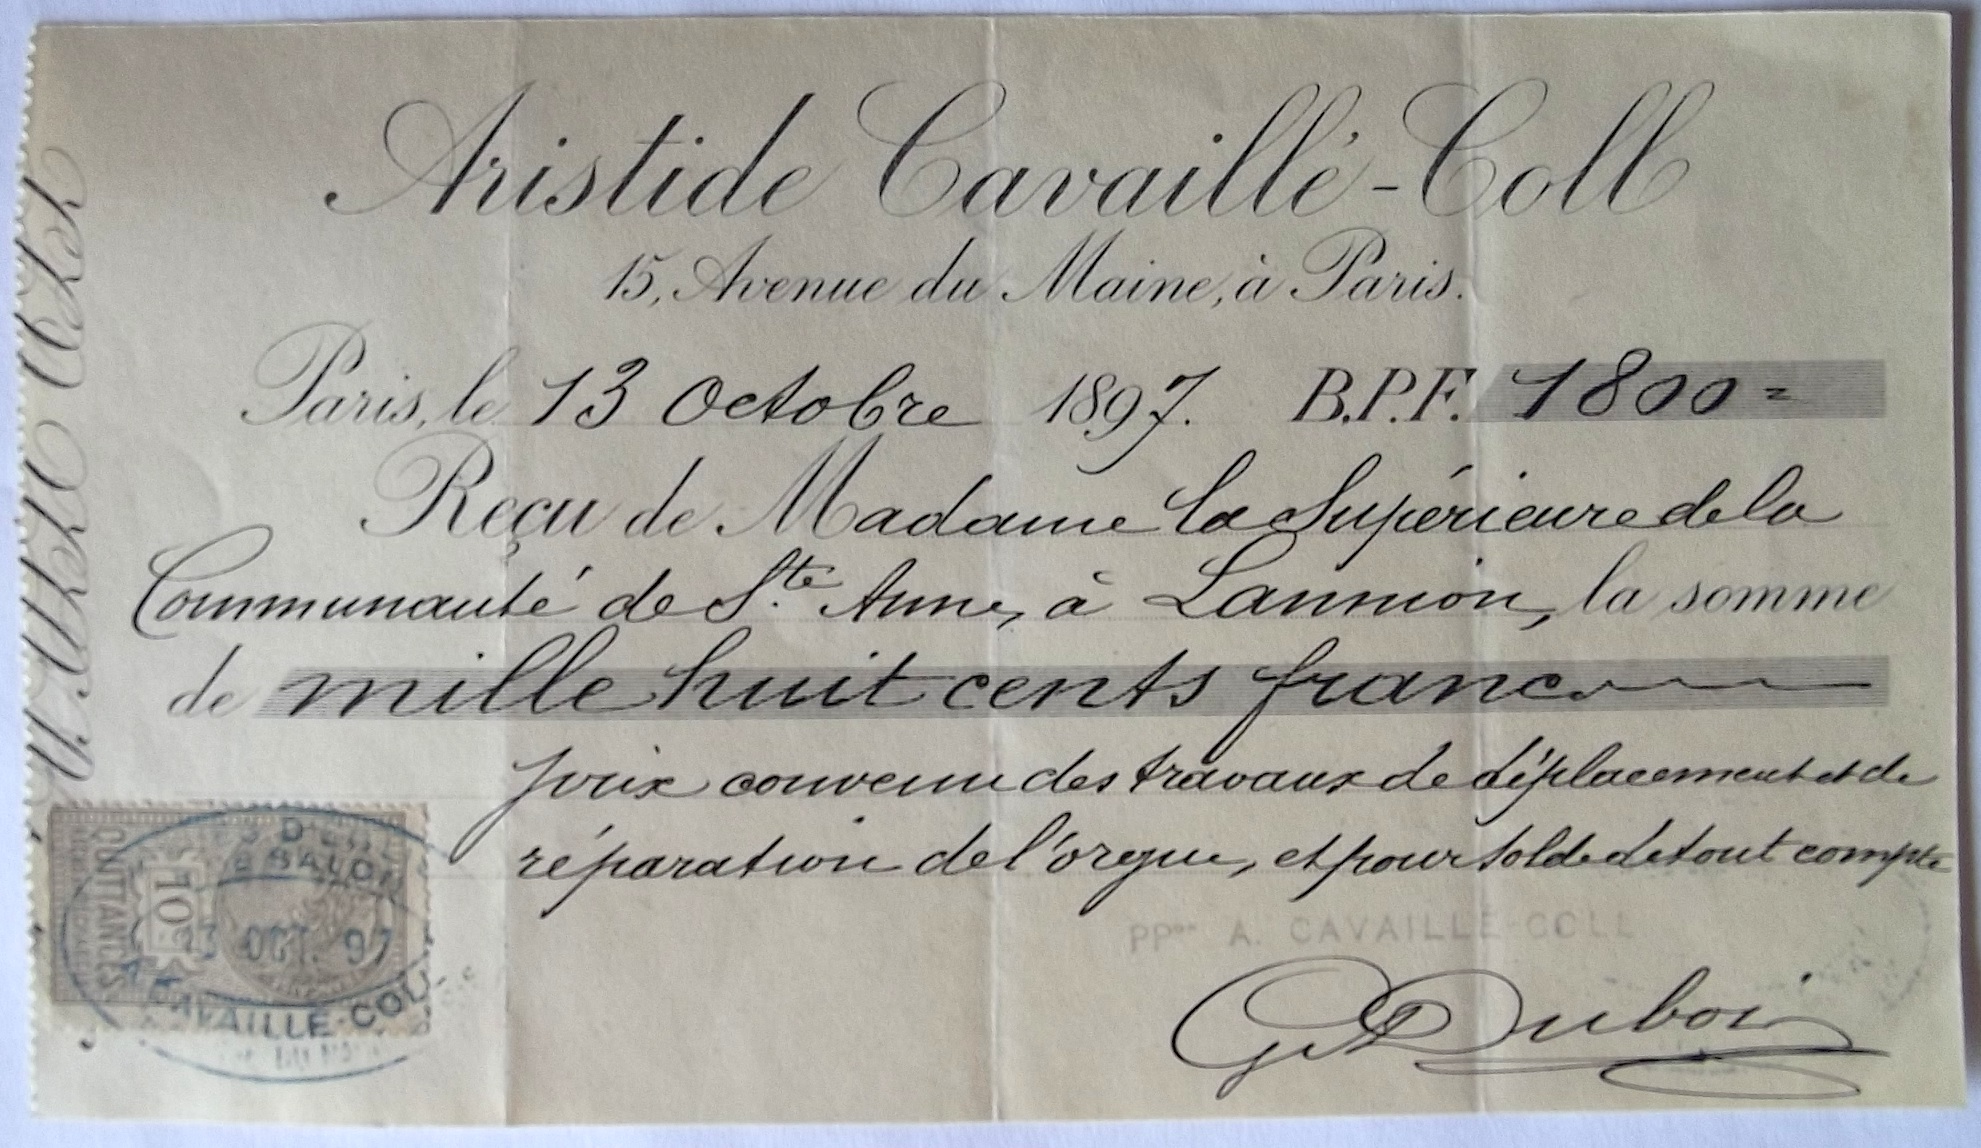 Aristide Cavaillé-Coll
15, Avenue du Maine, à Paris.
Paris, le 13 Octobre 1897. B.P.F. 1800=
Reçu de Madame la Supérieure de la
Communauté de Ste Anne, à Lannion, la somme
de mille huit cents francs
prix convenu des travaux de déplacement et de
réparation de l'orgue, et pour solde de tout compte
PPon A. CAVAILLÉ-COLL
G Dubois
QUITTANCES
10c
13 OCT. 97
A. CAVAILLÉ-COLL